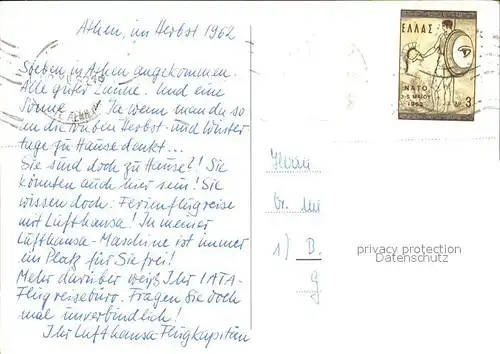 Athen, im Herbst 1962
Soeben in Athen angekommen.
Alle guter Laune. Und eine
Sonne - - Ja wenn man da so
an die trüben Herbst- und Winter
tage zu Hause denkt...
Sie sind doch zu Hause?! Sie
könnten auch hier sein! Sie
wissen doch: Ferienflugreise
mit Lufthansa! In meiner
Lufthansa-Maschine ist immer
ein Platz für Sie frei!
Mehr darüber weiß Ihr IATA-
Flugreisebüro. Fragen Sie doch
mal unverbindlich!
Ihr Lufthansa-Flugkapitän
ΕΛΛΑΣ
ΝΑΤΟ
3-5 ΜΑΪΟΥ
1962
ΔΡ. 3
Herrn
Dr.
1) B.
G
privacy protection
Datenschutz